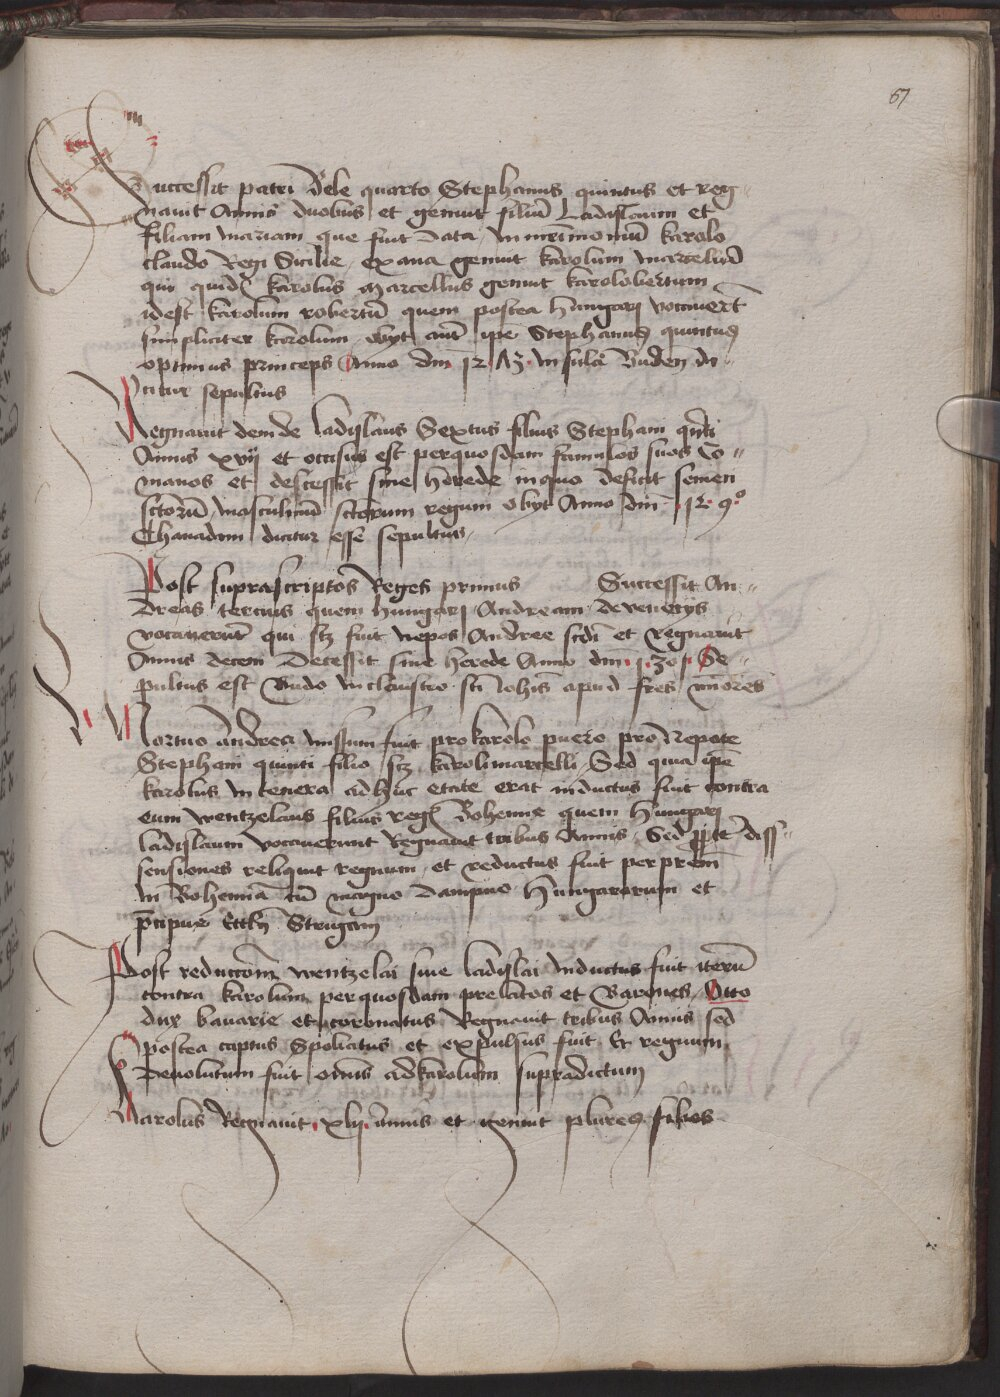 67
Successit patri Bele quarto Stephanus quintus et reg
nauit Annis duobus et genuit filiu͂ Ladislaum et
filiam mariam que fuit data in mr̄imoniu͂ karolo
claudo Regi Sicilie, ex qua genuit karolum marcellu͂
qui quid͂ karolus Marcellus genuit karolobertum
idest karolum robertu͂ quem postea hungari vocauer͂t
simpliciter karolum, obyt aut͂ ip͂e Stephanus quintus
optimus princeps Anno dn͂i 12 73 in sula Buden͂ di
citur sepultus
Regnauit deinde ladislaus Sextus filius Stephani qͥnti
Annis xvij et occisus est per quosdam famulos suos Co
manos et descessit sine herede in quo deficit semen
sc͂toru͂ masculinu͂ sc͂torum regum obyt Anno dn͂i 12 9º
Chanadini dicitur esse sepultus
Post suprascriptos Reges primus Successit An
dreas tercius quem hungari Andream de venecijs
vocauerunt qui sc͂z fuit nepos Andree scd͂i et regnauit
Annis decem Decessit sine herede Anno dn͂i 1301 Se
pultus est Bude in claustro sc͂ti Ioh͂is apud fr͂es mi͂ores
Mortuo andrea missum fuit pro karolo puero pro Nepote
Stephani quinti filio sc͂z karoli marcelli Sed quia ip͂e
karolus in tenera adhuc etate erat inductus fuit contra
eum wentzelaus filius reg͂ Bohemie quem hungari
ladislaum vocauerunt Regnauit tribus Annis, Sed pp͂ter diss
sensiones reliquit regnum, et reductus fuit per pr͂em
in Bohemia͂ cu͂ magno dampno hungarorum et
p͂cipue Strigon͂
Post reducc͂o͂em wentzelai siue ladislai Inductus fuit iteru͂
contra karolum per quosdam prelatos et Barones, Otto
dux bauarie et coronatus Regnauit tribus Annis sed
postea captus Spoliatus et expulsus fuit Et regnum
Deuolutum fuit om͂is ad karolum supradictum
karolus Regnauit xlij annis et genuit plures filios